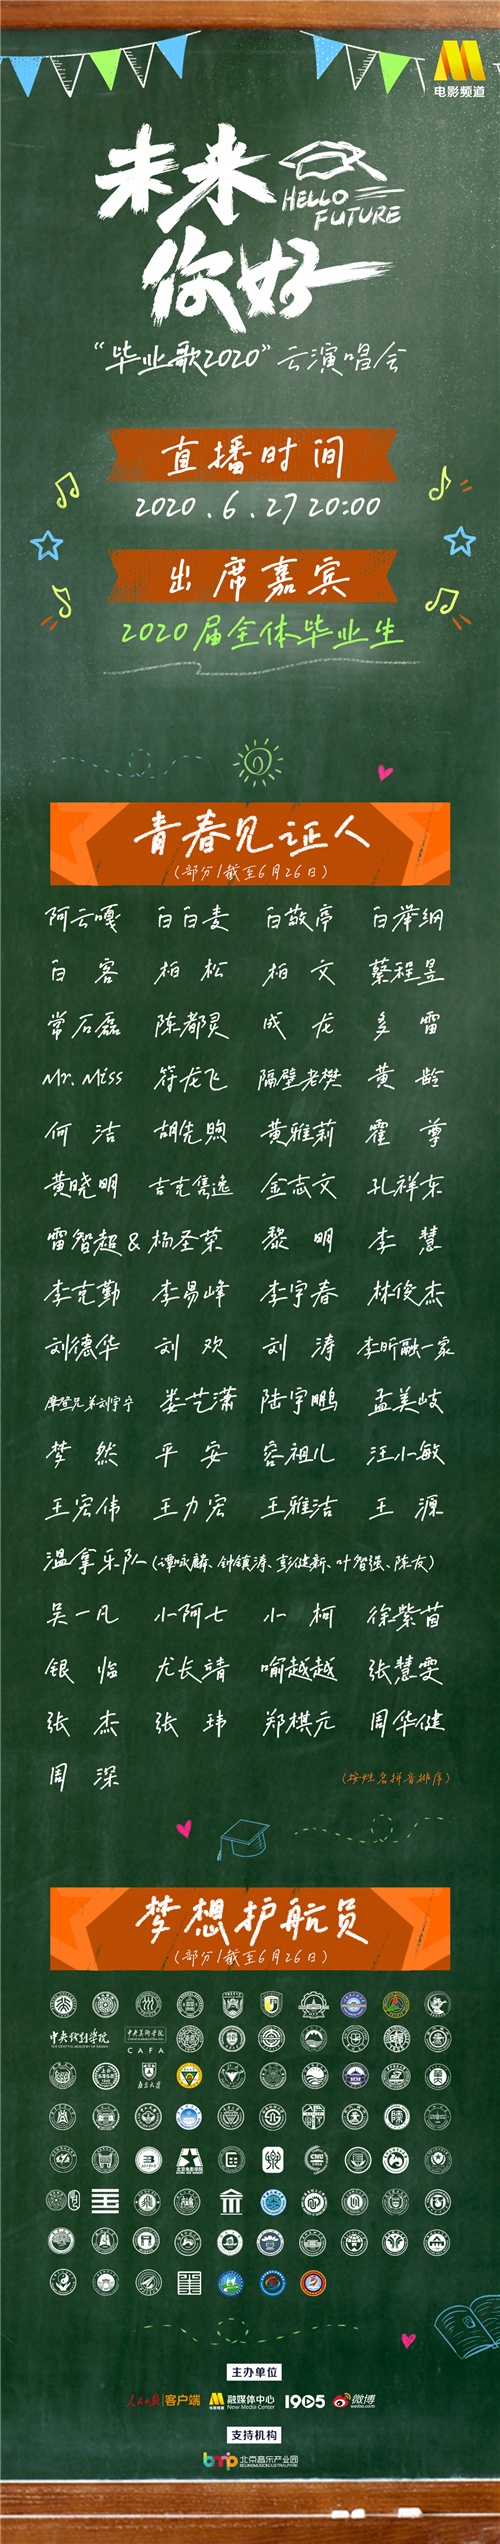 电影频道
未来
HELLO
FUTURE
你好
“毕业歌2020”云演唱会
直播时间
2020.6.27 20:00
出席嘉宾
2020届全体毕业生
青春见证人
(部分/截至6月26日)
阿云嘎 白白麦 白敬亭 白举纲
白客 柏松 柏文 蔡程昱
常石磊 陈都灵 成龙 多雷
Mr. Miss 符龙飞 隔壁老樊 黄龄
何洁 胡先煦 黄雅莉 霍尊
黄晓明 吉克隽逸 金志文 孔祥东
雷智超&杨圣荣 黎明 李慧
李克勤 李易峰 李宇春 林俊杰
刘德华 刘欢 刘涛 李昕融一家
摩登兄弟刘宇宁 娄艺潇 陆宇鹏 孟美岐
梦然 平安 容祖儿 汪小敏
王宏伟 王力宏 王雅洁 王源
温拿乐队(谭咏麟、钟镇涛、彭健新、叶智强、陈友)
吴一凡 小阿七 小柯 徐紫茵
银临 尤长靖 喻越越 张慧雯
张杰 张玮 郑棋元 周华健
周深
(按姓名拼音排序)
梦想护航员
(部分/截至6月26日)
中央戏剧学院
THE CENTRAL ACADEMY OF DRAMA
中央美术学院
CAFA
南京大学
北京电影学院
CNU
主办单位
人民日报|客户端 电影频道 融媒体中心 New Media Center 1905 微博 weibo.com
支持机构
bmip 北京音乐产业园
BEIJING MUSIC INDUSTRIAL PARK